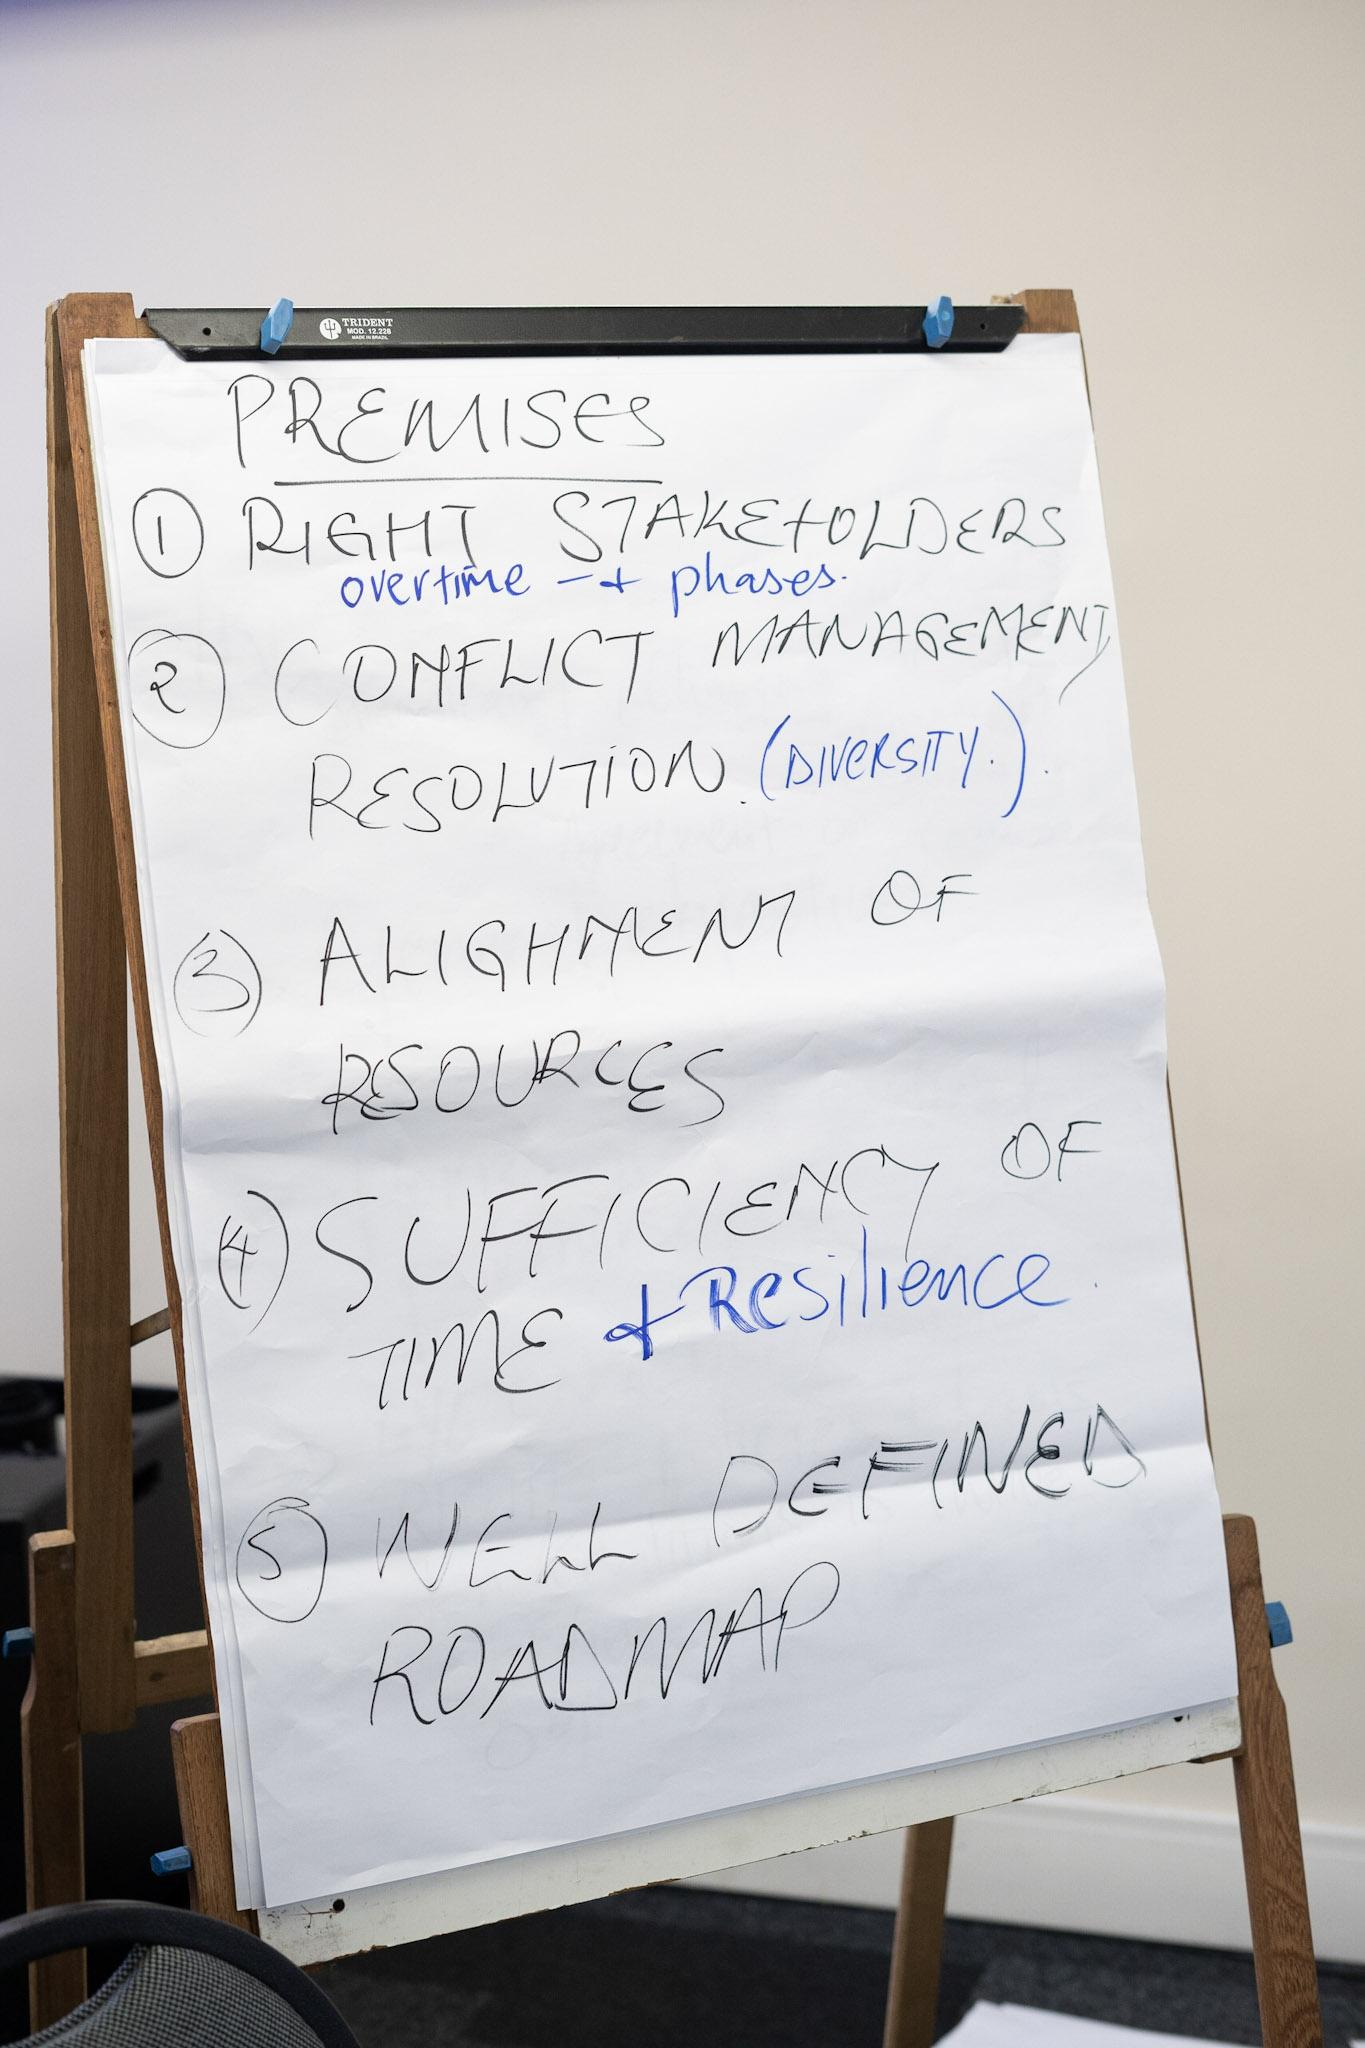 TRIDENT
MOD. 12.228
MADE IN BRAZIL
PREMISES
① RIGHT STAKEHOLDERS
overtime – + phases.
② CONFLICT MANAGEMENT,
RESOLUTION. (DIVERSITY.).
③ ALIGHMENT OF
RESOURCES
④ SUFFICIENCY OF
TIME + Resilience.
⑤ WELL DEFINED
ROADMAP